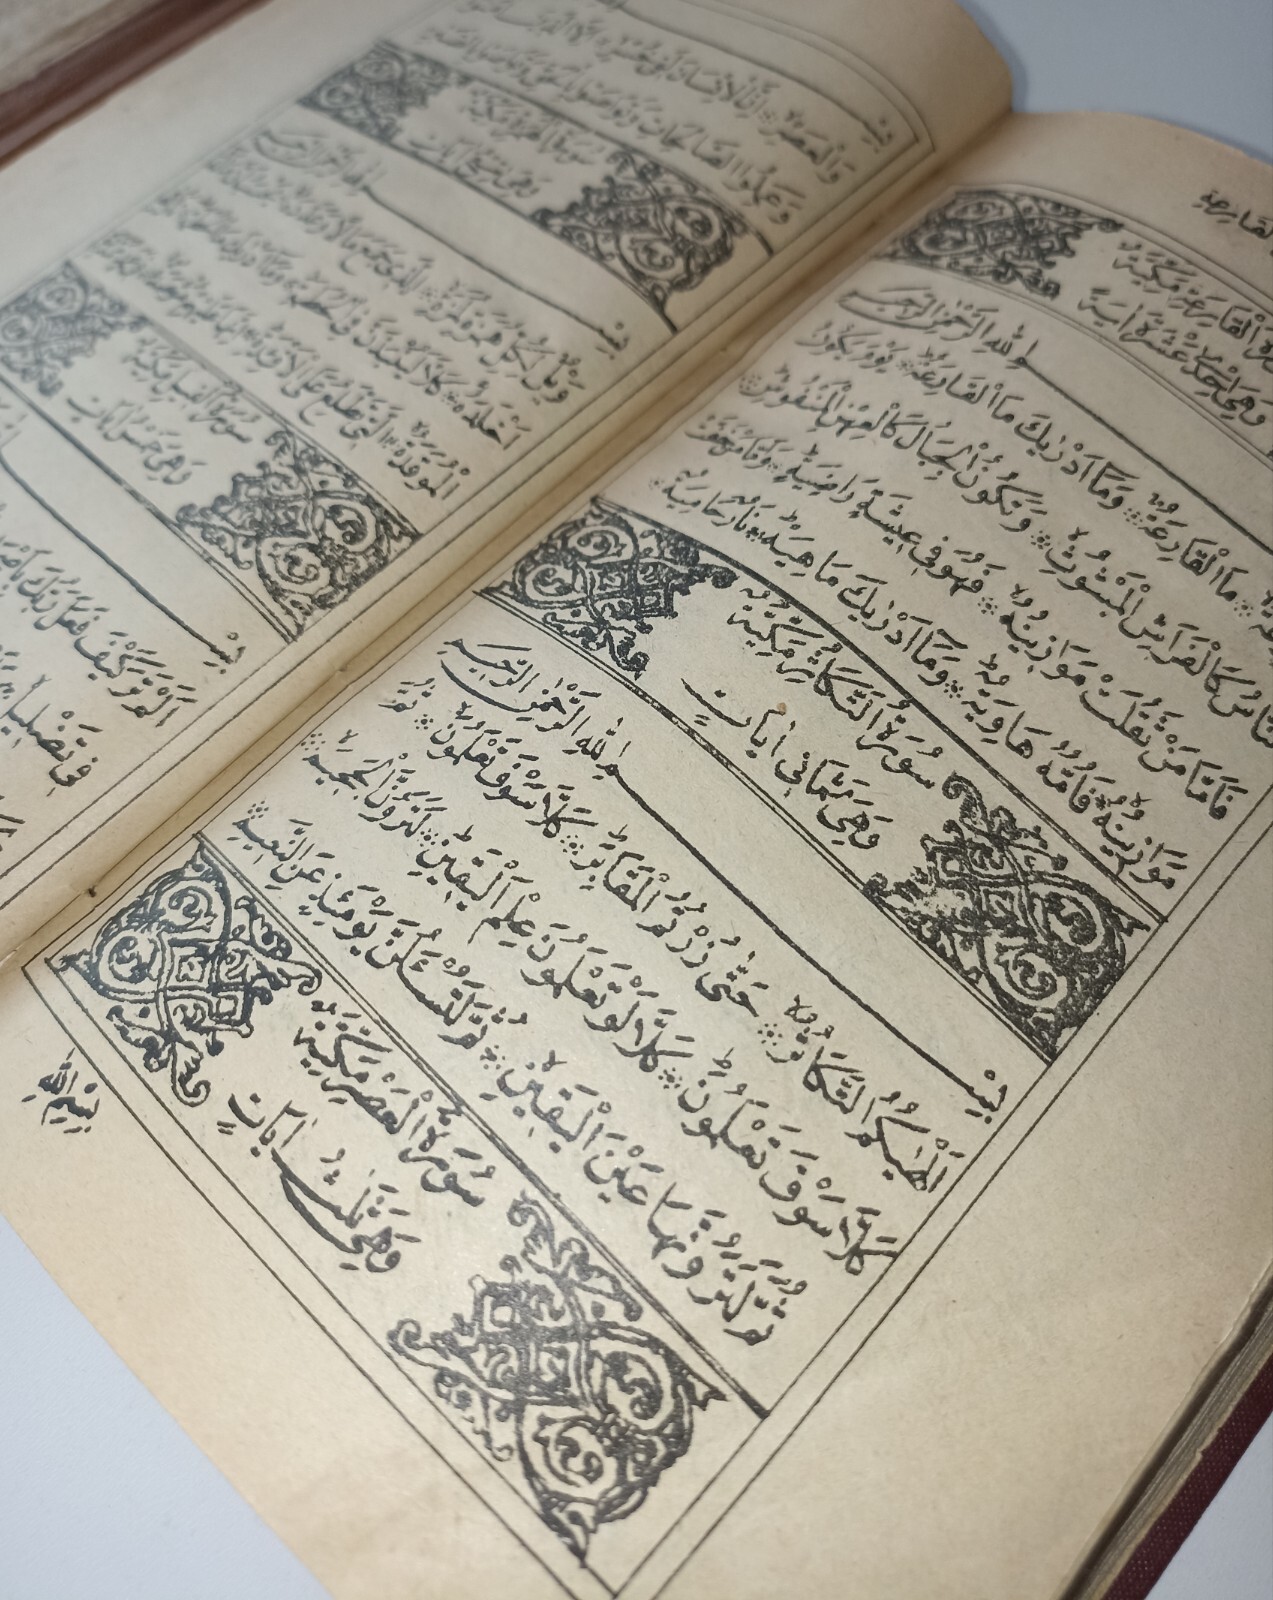 القارعة
سورة القارعة مكية
وهي احدى عشرة اية
بسم الله الرحمن الرحيم
مَا الْقَارِعَةُ وَمَا اَدْرٰيكَ مَا الْقَارِعَةُ يَوْمَ يَكُونُ
النَّاسُ كَالْفَرَاشِ الْمَبْثُوثِ وَتَكُونُ الْجِبَالُ كَالْعِهْنِ الْمَنْفُوشِ
فَاَمَّا مَنْ ثَقُلَتْ مَوَازِينُهُ فَهُوَ فِي عِيشَةٍ رَاضِيَةٍ وَاَمَّا مَنْ خَفَّتْ
مَوَازِينُهُ فَاُمُّهُ هَاوِيَةٌ وَمَا اَدْرٰيكَ مَا هِيَهْ نَارٌ حَامِيَةٌ
سُورَةُ التَّكَاثُرِ مَكِّيَّةٌ
وَهِيَ ثَمَانِي اٰيَاتٍ
بِسْمِ اللّٰهِ الرَّحْمٰنِ الرَّحِيمِ
اَلْهٰيكُمُ التَّكَاثُرُ حَتّٰى زُرْتُمُ الْمَقَابِرَ كَلَّا سَوْفَ تَعْلَمُونَ ثُمَّ
كَلَّا سَوْفَ تَعْلَمُونَ كَلَّا لَوْ تَعْلَمُونَ عِلْمَ الْيَقِينِ لَتَرَوُنَّ الْجَحِيمَ
ثُمَّ لَتَرَوُنَّهَا عَيْنَ الْيَقِينِ ثُمَّ لَتُسْـَٔلُنَّ يَوْمَئِذٍ عَنِ النَّعِيمِ
سُورَةُ الْعَصْرِ مَكِّيَّةٌ
وَهِيَ ثَلٰثُ اٰيَاتٍ
بِسْمِ اللّٰهِ
بسم
وَالْعَصْرِ اِنَّ الْاِنْسَانَ لَفِي خُسْرٍ اِلَّا الَّذِينَ
وَعَمِلُوا الصَّالِحَاتِ وَتَوَاصَوْا بِالْحَقِّ وَتَوَاصَوْا بِالصَّبْرِ
سورة الهمزة مكية
وهي تسع ايات
بسم الله الرحمن الرحيم
وَيْلٌ لِكُلِّ هُمَزَةٍ لُمَزَةٍ اَلَّذِي جَمَعَ مَالًا وَعَدَّدَهُ
اَخْلَدَهُ كَلَّا لَيُنْبَذَنَّ فِي الْحُطَمَةِ وَمَا اَدْرٰيكَ
الْمُوقَدَةُ الَّتِي تَطَّلِعُ عَلَى الْاَفْـِٔدَةِ
سورة الفيل مكية
وهي خمس ايات
بسم
اَلَمْ تَرَ كَيْفَ فَعَلَ رَبُّكَ
فِي تَضْلِيلٍ